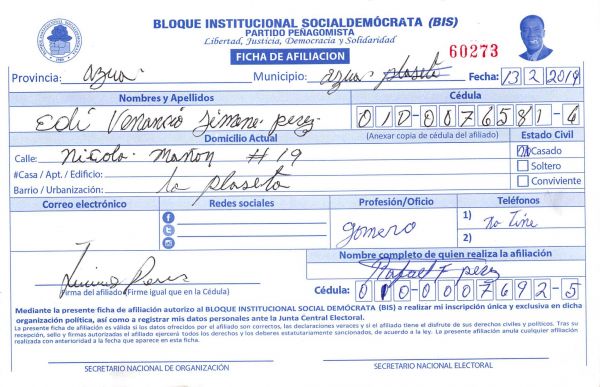 BLOQUE INSTITUCIONAL SOCIALDEMÓCRATA (BIS)
PARTIDO PEÑAGOMISTA
Libertad, Justicia, Democracia y Solidaridad
FICHA DE AFILIACION
60273
Provincia: azua. Municipio: azua plaseta Fecha: 13 2 2019
Nombres y Apellidos Cédula
Edí Venancio Jimene perez 010-0076581-6
Domicilio Actual (Anexar copia de cédula del afiliado) Estado Civil
Calle: Nicola Mañon #19 Casado
#Casa / Apt. / Edificio: Soltero
Barrio / Urbanización: la plaseta Conviviente
Correo electrónico Redes sociales Profesión/Oficio Teléfonos
gomero 1) no Tine
2)
Nombre completo de quien realiza la afiliación
Rafael F perez
Firma del afiliado (Firme igual que en la Cédula) Cédula: 010-0007692-5
Mediante la presente ficha de afiliación autorizo al BLOQUE INSTITUCIONAL SOCIAL DEMÓCRATA (BIS) a realizar mi inscripción única y exclusiva en dicha
organización política, así como a registrar mis datos personales ante la Junta Central Electoral.
La presente ficha de afiliación es válida si los datos ofrecidos por el afiliado son correctos, las declaraciones veraces y si el afiliado tiene el disfrute de sus derechos civiles y políticos. Tras su
recepción, sello y firmas autorizadas el afiliado ejercerá todos los derechos y los deberes estatutariamente sancionados, de acuerdo a la ley. La presente afiliación anula cualquier afiliación
realizada con anterioridad a la fecha que aparece en esta ficha.
SECRETARIO NACIONAL DE ORGANIZACIÓN SECRETARIO NACIONAL ELECTORAL